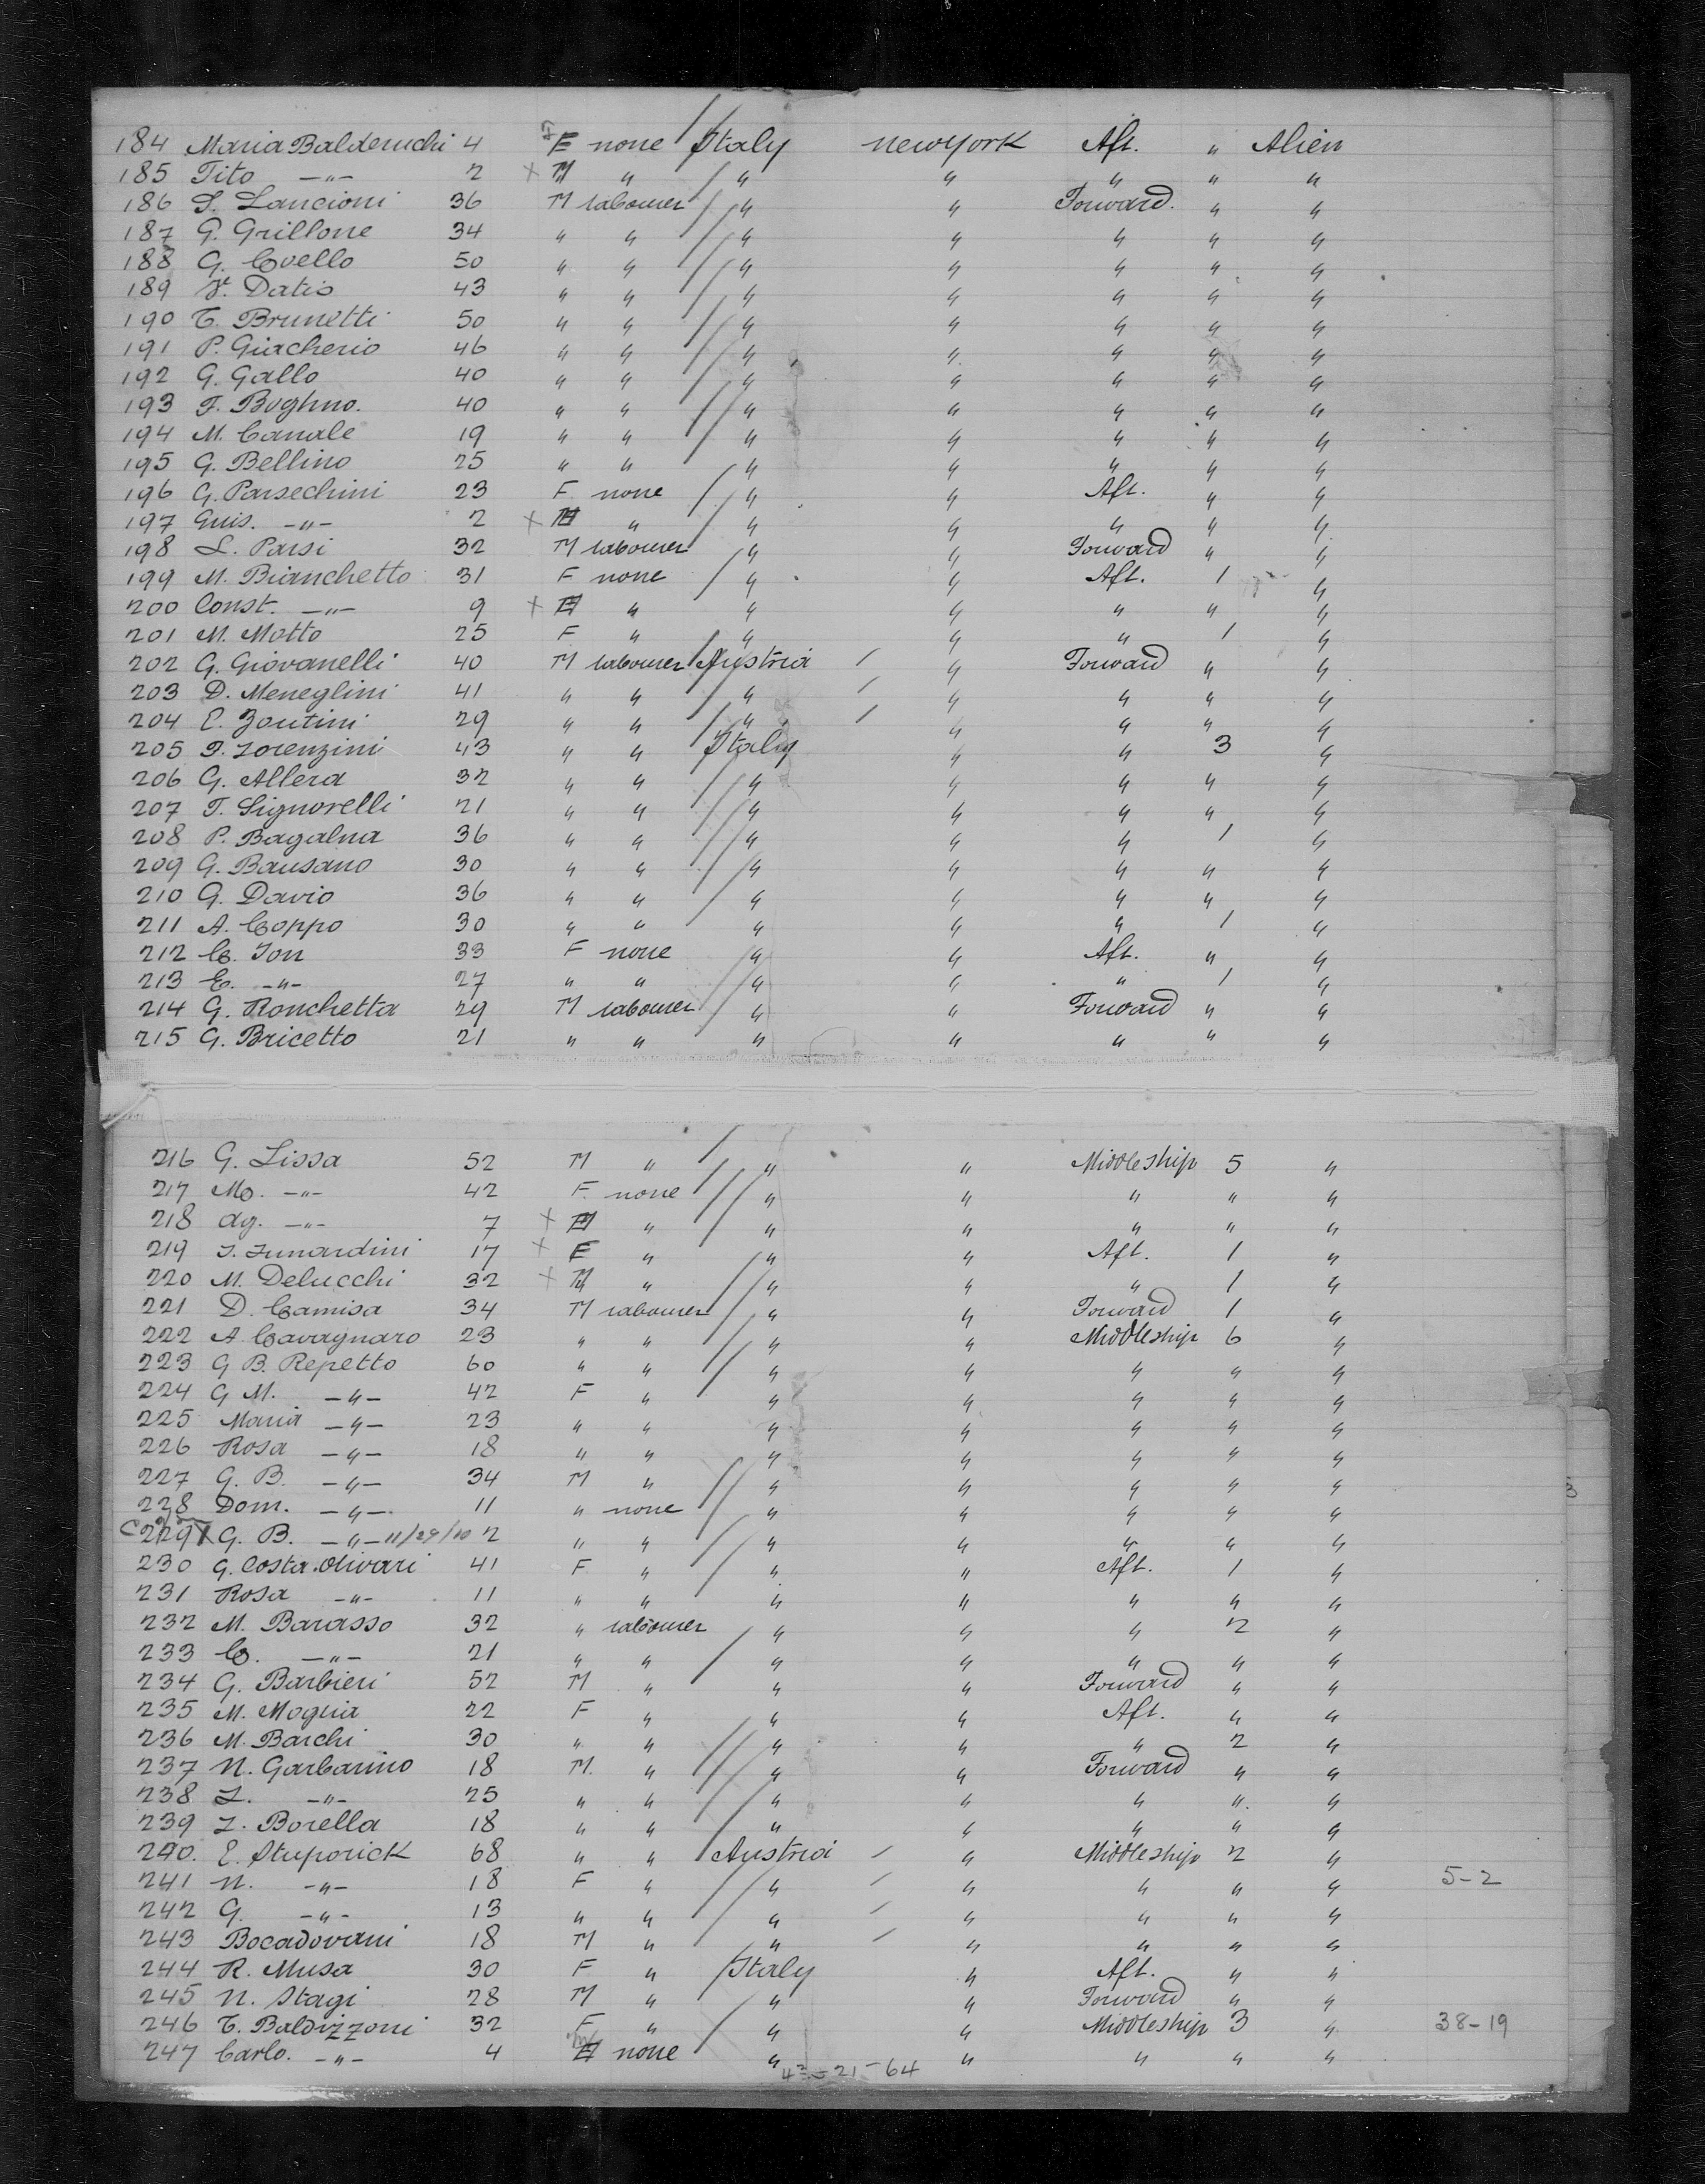 184 Maria Balderuchi 4 F none Italy newyork Aft. " Alien
185 Tito -"- 2 x M " " " " " "
186 S. Lancioni 36 M labourer " " Forward. " "
187 G. Grillone 34 " " " " " " "
188 G. Coello 50 " " " " " " "
189 V. Datis 43 " " " " " " "
190 T. Brunetti 50 " " " " " " "
191 P. Giacherio 46 " " " " " " "
192 G. Gallo 40 " " " " " " "
193 F. Boghno. 40 " " " " " " "
194 M. Canale 19 " " " " " " "
195 G. Bellino 25 " " " " " " "
196 G. Parsechini 23 F none " " Aft. " "
197 Guis. -"- 2 x " " " " " "
198 L. Parsi 32 M labourer " " Forward " "
199 M. Bianchetto 31 F none " " Aft. 1 "
200 Const. -"- 9 x " " " " " "
201 M. Motto 25 F " " " " 1 "
202 G. Giovanelli 40 M labourer Austria / " Forward " "
203 D. Meneglini 41 " " " / " " " "
204 E. Zontini 29 " " " / " " " "
205 P. Lorenzini 43 " " Italy " " 3 "
206 G. Allera 32 " " " " " " "
207 T. Signorelli 21 " " " " " " "
208 P. Bagalna 36 " " " " " 1 "
209 G. Bausano 30 " " " " " " "
210 G. Davio 36 " " " " " " "
211 A. Coppo 30 " " " " " 1 "
212 C. Ion 33 F none " " Aft. " "
213 E. -"- 27 " " " " " 1 "
214 G. Ronchetta 29 M labourer " " Forward " "
215 G. Bricetto 21 " " " " " " "
216 G. Lissa 52 M " " " Middleship 5 "
217 Mo. -"- 42 F. none " " " " "
218 Ag. -"- 7 x " " " " " "
219 I. Lunardini 17 x F " " " Aft. 1 "
220 M. Delucchi 32 x M " " " " 1 "
221 D. Camisa 34 M labourer " " Forward 1 "
222 A. Cavagnaro 23 " " " " Middleship 6 "
223 G B. Repetto 60 " " " " " " "
224 G M. -"- 42 F " " " " " "
225 Maria -"- 23 " " " " " " "
226 Rosa -"- 18 " " " " " " "
227 G. B. -"- 34 M " " " " " "
228 Dom. -"- 11 " none " " " " "
229 G. B. -"- 11/29/10 2 " " " " " " "
230 G. Costa. Olivari 41 F " " " Aft. 1 "
231 Rosa -"- 11 " " " " " " "
232 M. Barasso 32 " labourer " " " 2 "
233 C. -"- 21 " " " " " " "
234 G. Barbieri 52 M " " " Forward " "
235 M. Moglia 22 F " " " Aft. " "
236 M. Barchi 30 " " " " " 2 "
237 N. Garbarino 18 M. " " " Forward " "
238 L. -"- 25 " " " " " " "
239 L. Borella 18 " " " " " " "
240. E. Stuporick 68 " " Austria / " Middleship 2 "
241 N. -"- 18 F " " / " " " " 5-2
242 G. -"- 13 " " " / " " " "
243 Bocadovani 18 M " " / " " " "
244 R. Musa 30 F " Italy " Aft. " "
245 N. Stagi 28 M " " " Forward " "
246 T. Baldizzoni 32 F " " " Middleship 3 " 38-19
247 Carlo. -"- 4 none " " " " "
-21-64